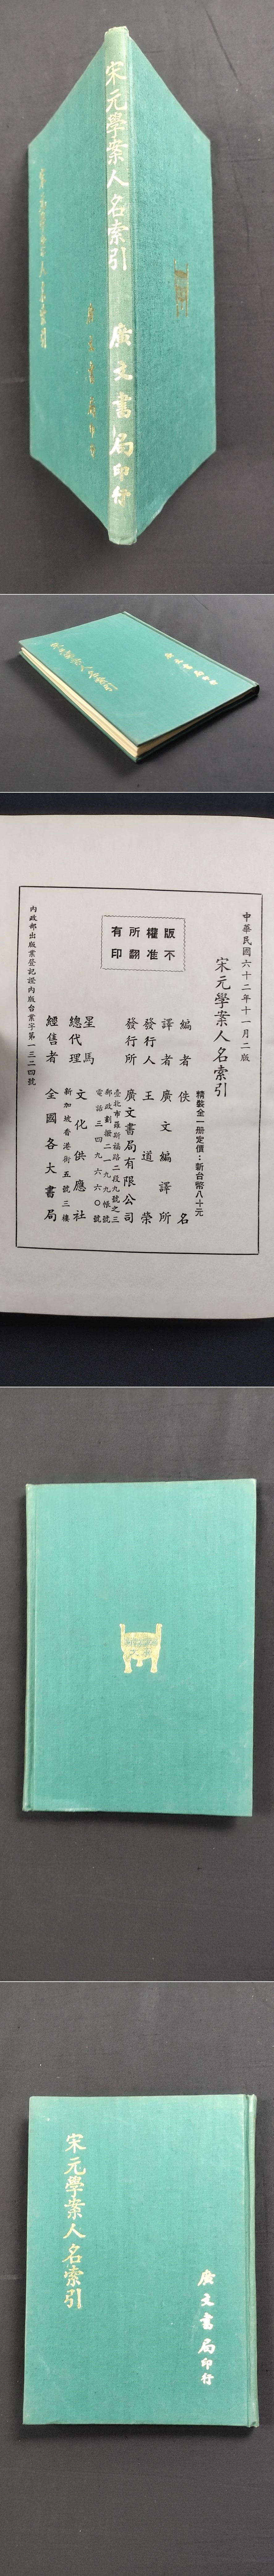 宋元學案人名索引
廣文書局印行
宋元學案人名索引
廣文書局印行
宋元學案人名索引
廣文書局印行
中華民國六十二年十一月二版
宋元學案人名索引
精裝全一册定價：新台幣八十元
版權所有
不准翻印
編者 佚名
譯者 廣文編譯所
發行人 王道榮
發行所 廣文書局有限公司
臺北市羅斯福路二段九號之三
郵政劃撥二一九九帳號
電話三四九六六〇號
星馬總代理 文化供應社
新加坡香港街五號三樓
經售者 全國各大書局
內政部出版業登記證內版台業字第一三二四號
宋元學案人名索引
廣文書局印行